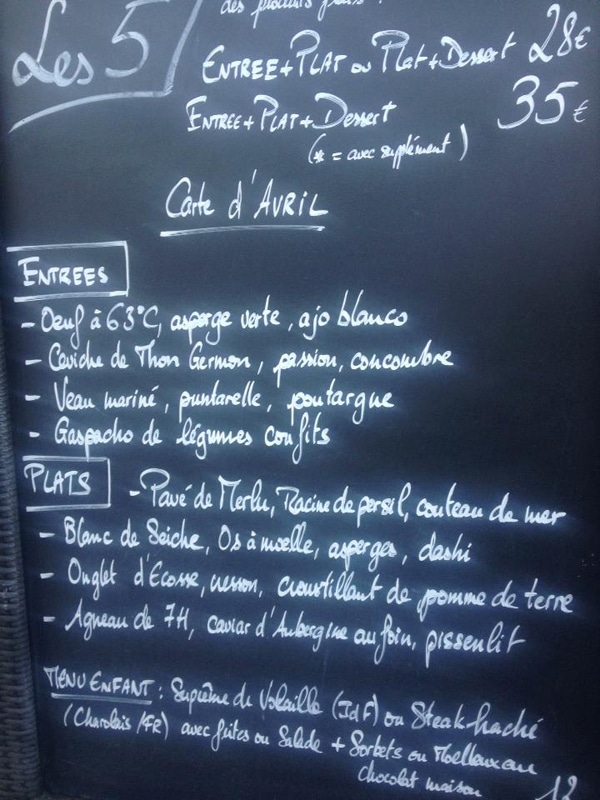 des produits frais !
Les 5
ENTREE + PLAT ou Plat + Dessert 28€
ENTREE + PLAT + Dessert 35€
(* = avec supplément)
Carte d'AVRIL
ENTREES
- Oeuf à 63°C, asperge verte, ajo blanco
- Ceviche de Thon Germon, passion, concombre
- Veau mariné, puntarelle, poutargue
- Gaspacho de légumes confits
PLATS
- Pavé de Merlu, Racine de persil, couteau de mer
- Blanc de Seiche, Os à moelle, asperges, dashi
- Onglet d'Ecosse, cresson, croustillant de pomme de terre
- Agneau de 7H, caviar d'Aubergine au foin, pissenlit
MENU ENFANT : Suprême de Volaille (IdF) ou Steak haché
(Charolais/FR) avec frites ou Salade + Sorbets ou Moelleux au
chocolat maison 12